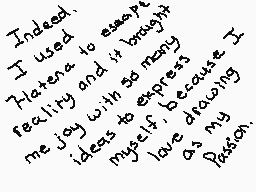 Indeed.
I used
Hatena to escape
reality and it brought
me joy with so many
ideas to express
myself, because I
love drawing
as my
Passion.